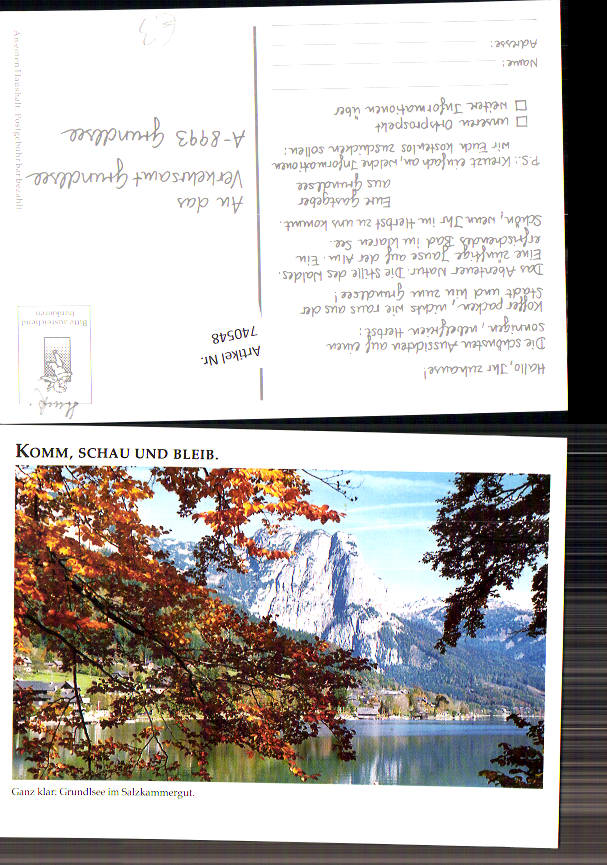 Hallo, Ihr zuhause!
Die schönsten Aussichten auf einen
sonnigen, nebelfreien Herbst:
Koffer packen, nichts wie raus aus der
Stadt und hin zum Grundlsee!
Das Abenteuer Natur. Die Stille des Waldes.
Eine zünftige Jause auf der Alm. Ein
erfrischendes Bad im klaren See.
Schön, wenn Ihr im Herbst zu uns kommt.
Eure Gastgeber
aus Grundlsee
P.S.: Kreuzt einfach an, welche Informationen
wir Euch kostenlos zuschicken sollen:
unseren Ortsprospekt
weitere Informationen über
Name:
Adresse:
Artikel Nr.
740548
Bitte ausreichend
frankieren
An das
Verkehrsamt Grundlsee
A-8993 Grundlsee
An einen Haushalt. Postgebühr bar bezahlt
KOMM, SCHAU UND BLEIB.
Ganz klar. Grundlsee im Salzkammergut.